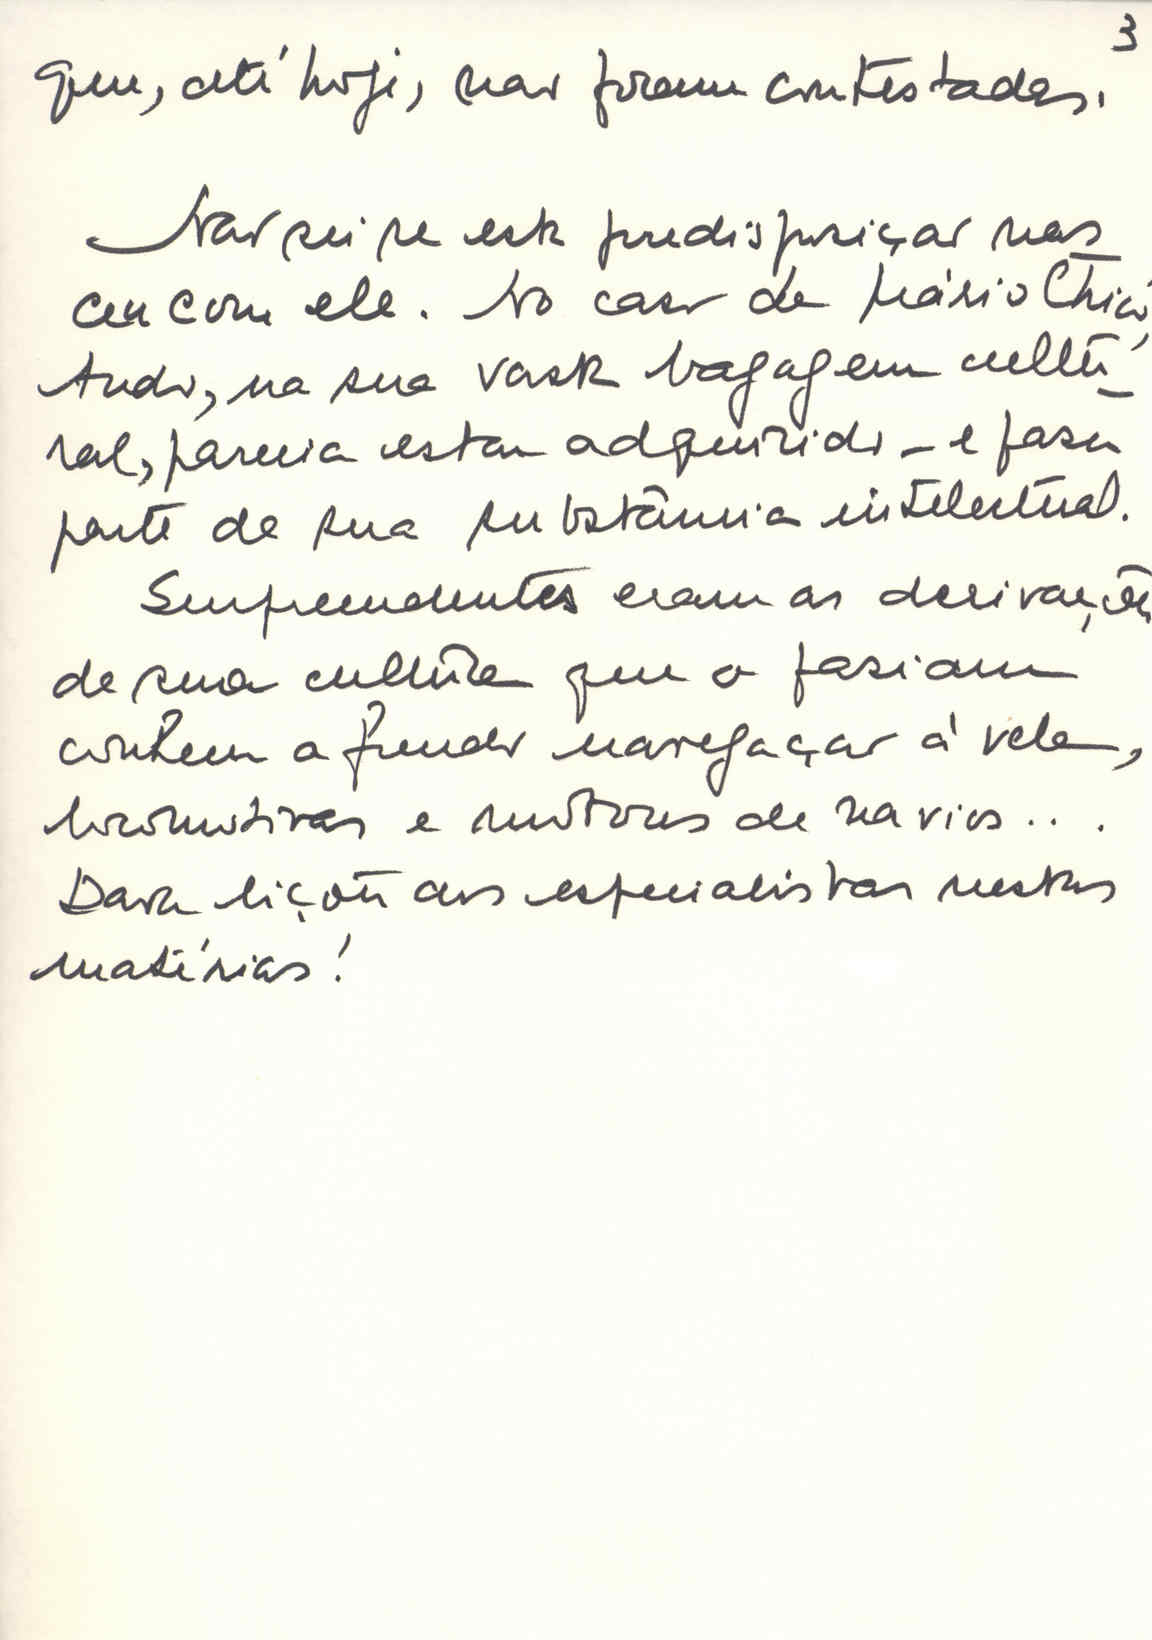 3
que, até hoje, não foram contestadas.
Não sei se esta predisposição nas
ceu com ele. No caso de Mário Chicó,
tudo, na sua vasta bagagem cultu-
ral, parecia estar adquirido - e fazer
parte de sua substância intelectual.
Surpreendentes eram as derivações
de sua cultura que o faziam
conhecer a fundo navegação à vela,
locomotivas e motores de navios...
Dava lições aos especialistas nestas
matérias!